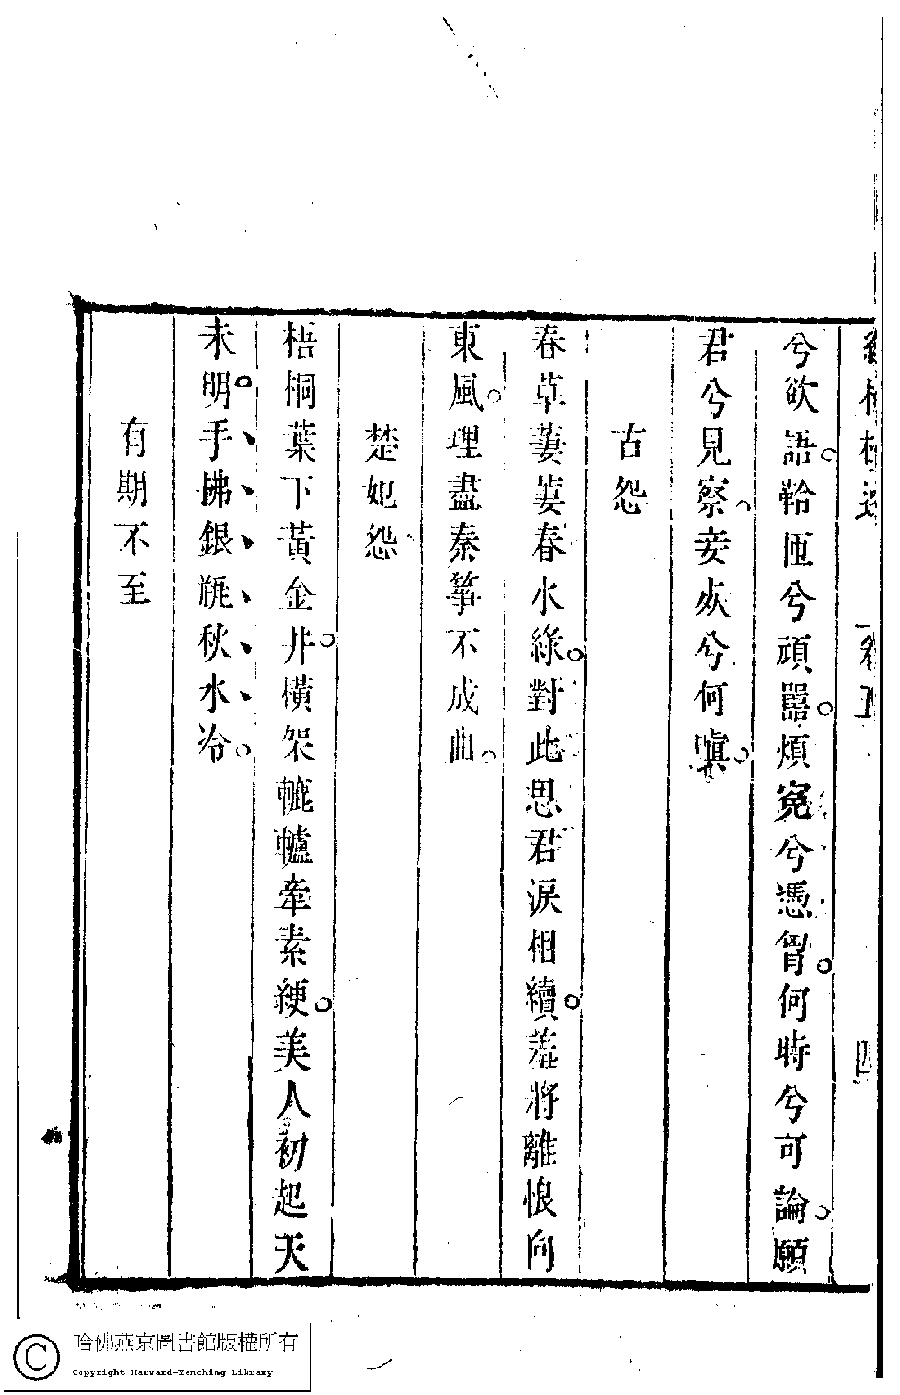 兮欲語鞈匝兮頑嚚煩冤兮憑胷何時兮可論願
君兮見察妾夾兮何嗔
古怨
春草萋萋春水綠對此思君淚相續羞將離恨向
東風理盡秦箏不成曲
楚妃怨
梧桐葉下黃金井橫架轆轤牽素綆美人初起天
未明手拂銀瓶秋水冷
有期不至
四
哈佛燕京圖書館版權所有
Copyright Harvard-Yenching Library